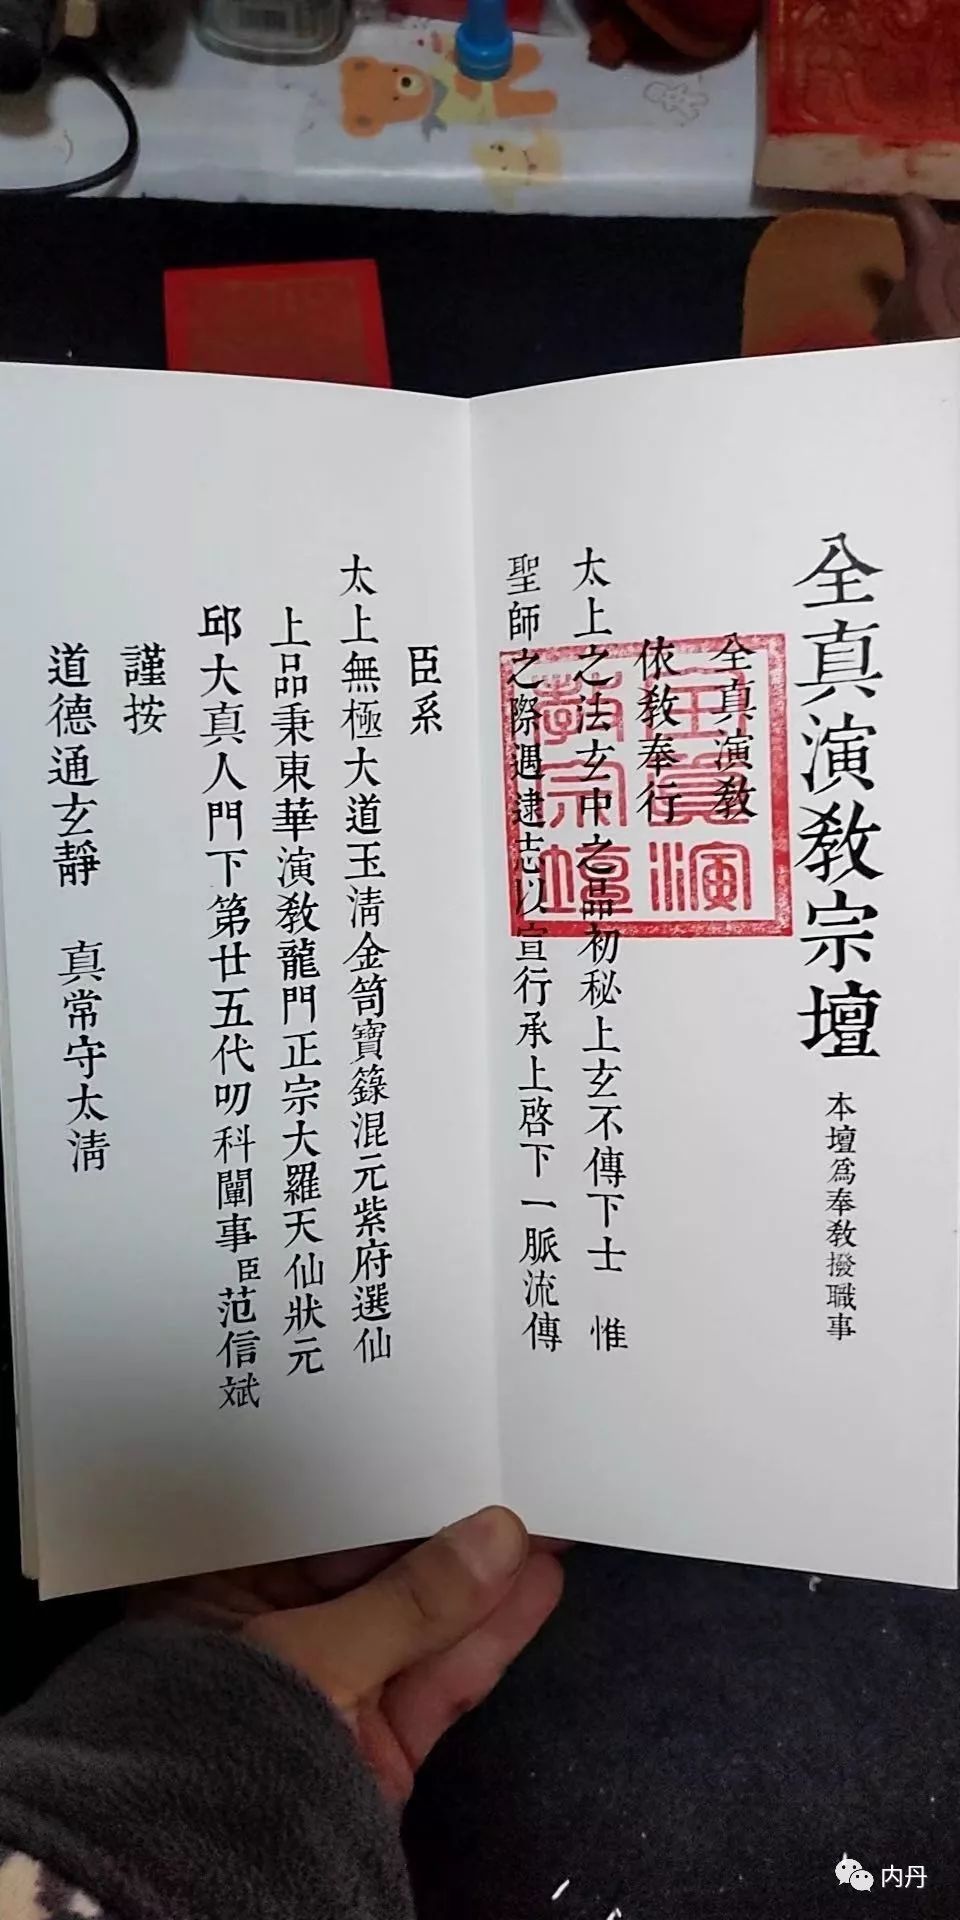 全真演教宗壇 本壇爲奉教撥職事
全真演教
依教奉行
太上之法玄中之品初秘上玄不傳下士 惟
聖師之際遇逮志以宣行承上啓下一脈流傳
臣系
太上無極大道玉清金笥寶籙混元紫府選仙
上品秉東華演教龍門正宗大羅天仙狀元
邱大真人門下第廿五代叨科闡事臣范信斌
謹按
道德通玄靜 真常守太清
全真演
教宗壇
内丹